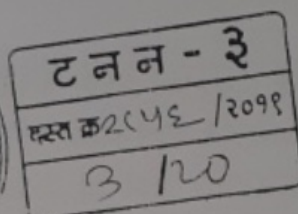 टनन - ३
दस्त क्र२८५६ /२०१९
3 /20